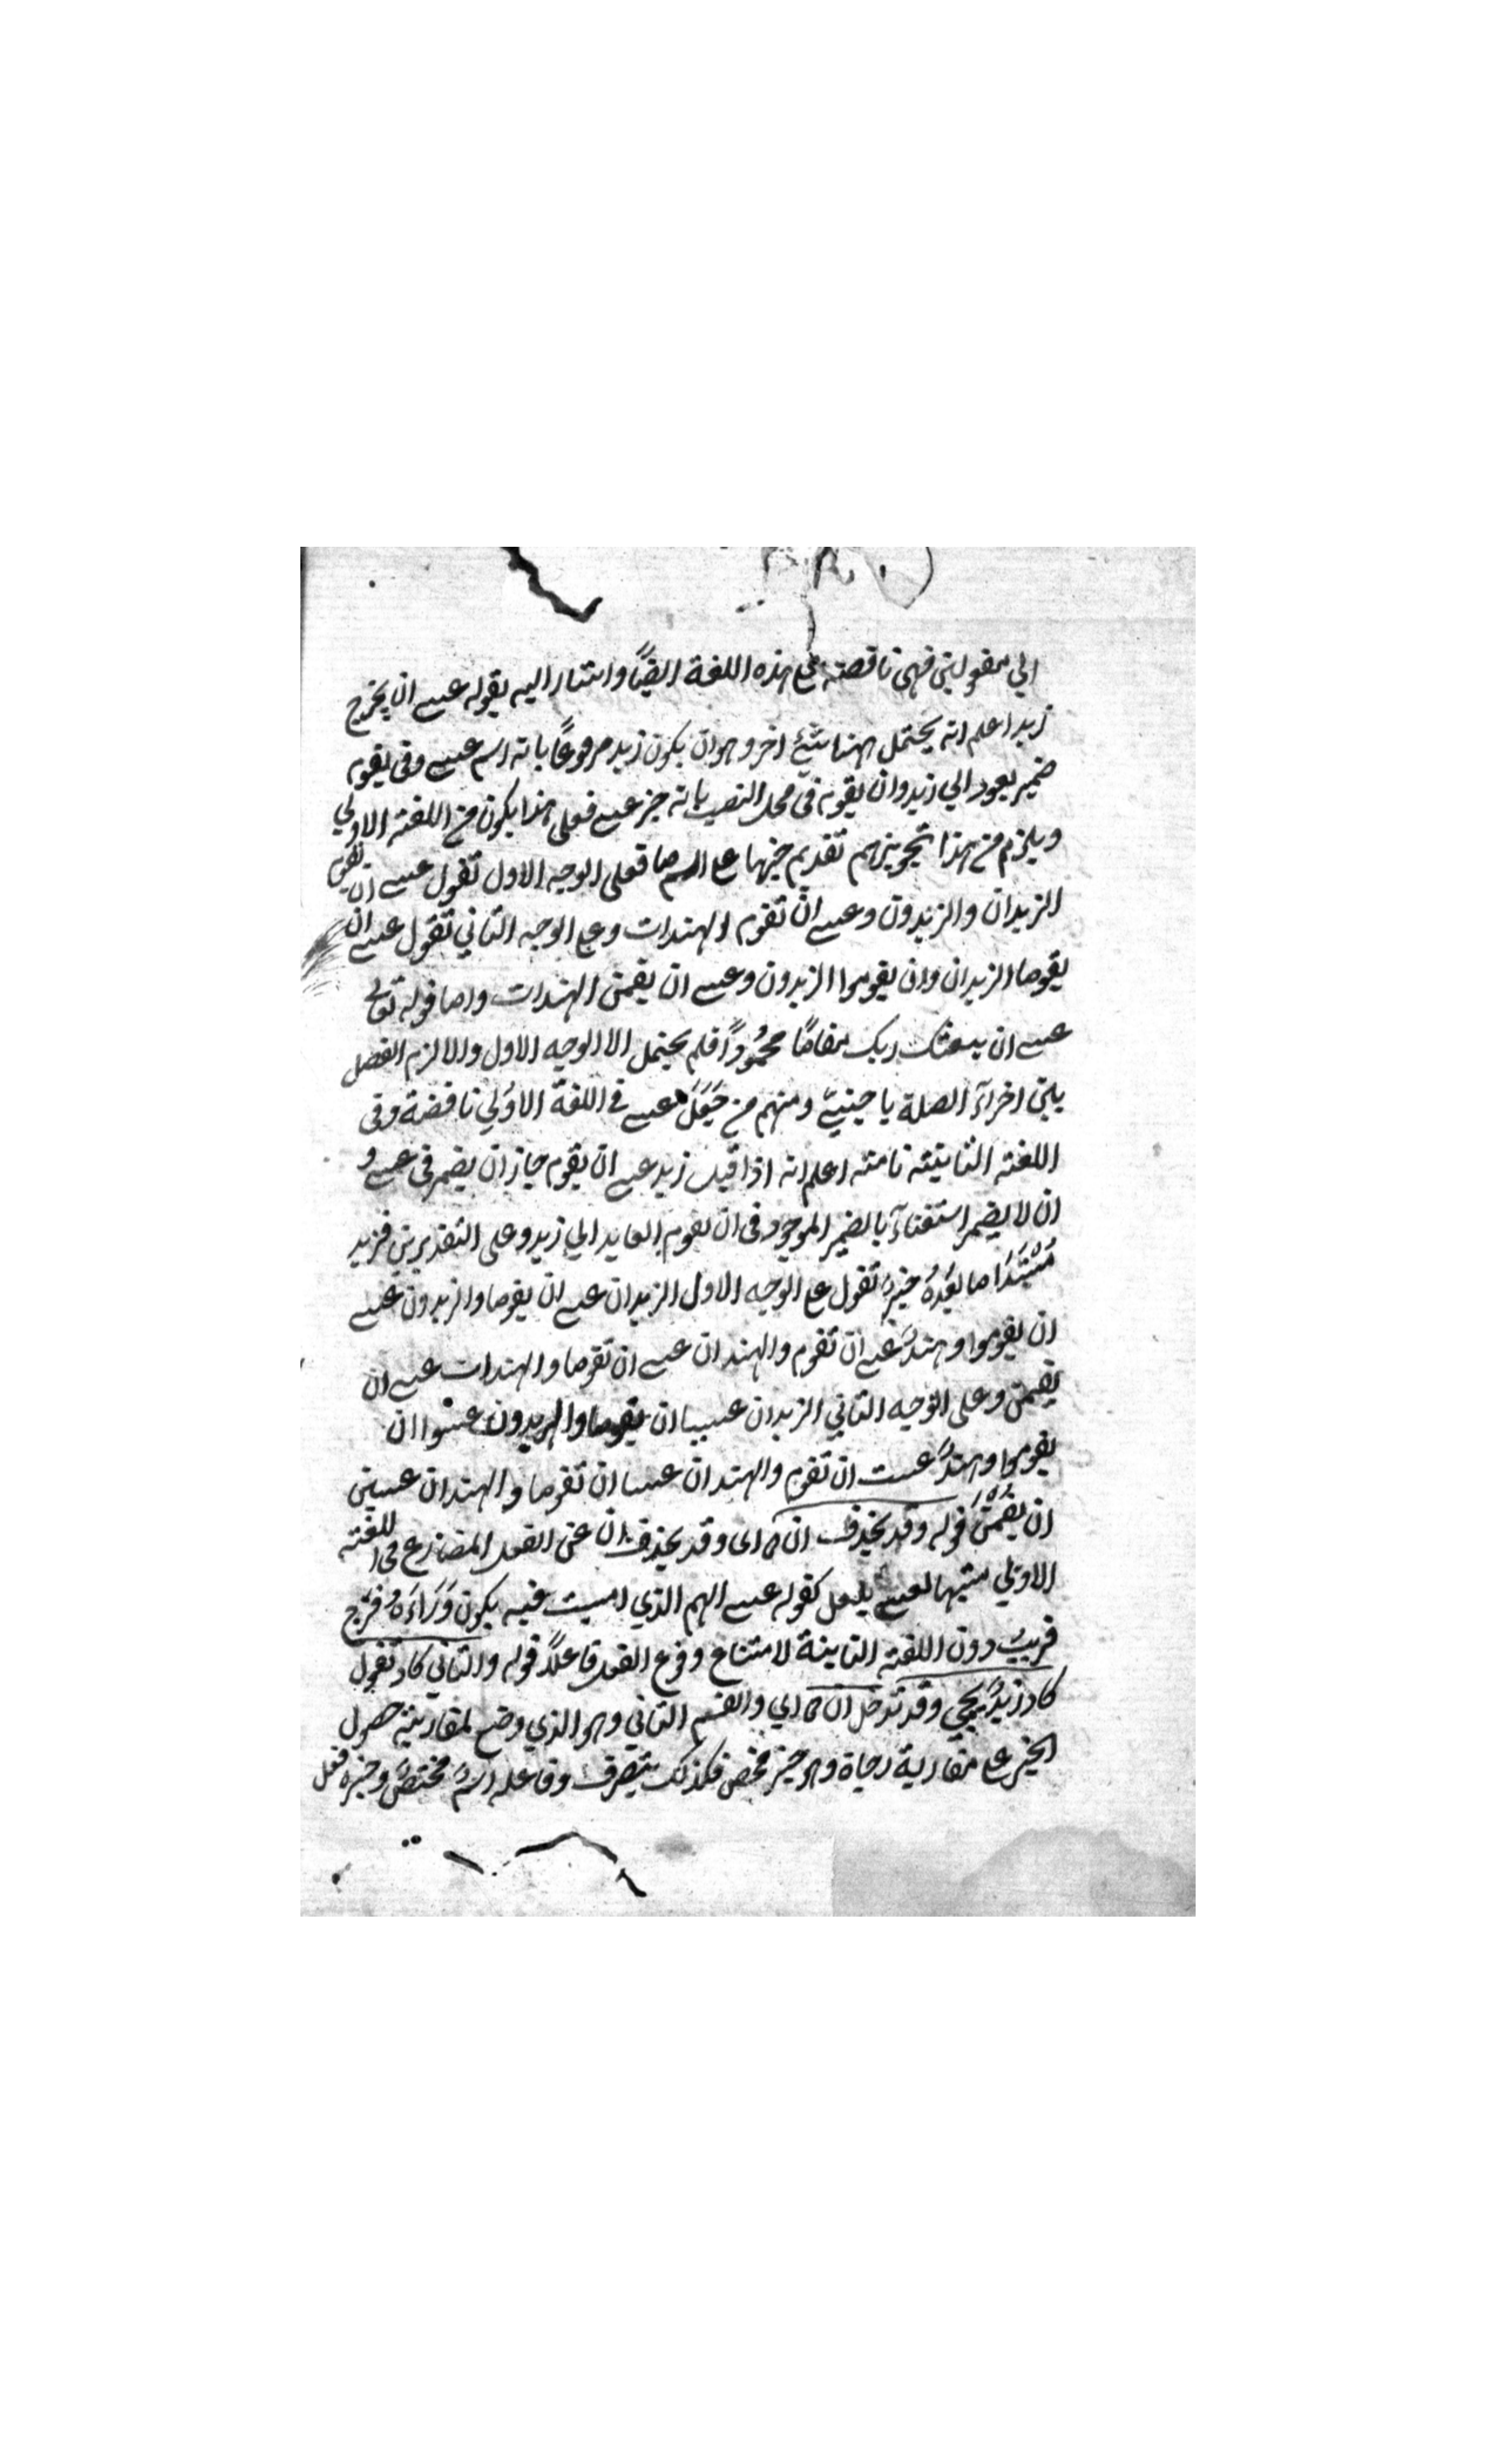 الي مفعولين فهي ناقصة علي هذه اللغة ايضًا واشار اليه بقوله عسى ان يخرج
زيد اعلم انه يحتمل ههنا شئ اخر وهو ان يكون زيد مرفوعًا بانه اسم عسى وفى يقوم
ضمير يعود الي زيد وان يقوم فى محل النصب بانه خبر عسى فعلى هذا يكون من اللغة الاولي
ويلزم من هذا تجويزهم تقديم خبرها على اسمها فعلى الوجه الاول تقول عسى ان يقوم
الزيدان والزيدون وعسى ان تقوم الهندات وعلى الوجه الثاني تقول عسى ان
يقوما الزيدان وان يقوموا الزيدون وعسى ان يقمن الهندات واما قوله تعالى
عسى ان يبعثك ربك مقامًا محمُودًا فلم يحتمل الا الوجه الاول والا لزم الفصل
بين اجزآء الصلة باجنبيّ ومنهم من جَعَلَ عسى في اللغة الاوُلي ناقصة وفى
اللغة الثانية تامة اعلم انه اذا قيل زيد عسى ان يقوم جاز ان يضمر فى عسى و
ان لا يضمر استغنآءً بالضمير الموجود فى ان يقوم العايد الي زيد وعلى التقديرين فزيد
مُبْتَدَا ما بَعْدهُ خبرهُ تقول على الوجه الاول الزيدان عسى ان يقوما والزيدون عسى
ان يقوموا وهندٌ عسى ان تقوم والهندان عسى ان تقوما والهندات عسى ان
يقمن وعلى الوجه الثاني الزيدان عسيا ان يقوما والزيدون عسَوْا ان
يقوموا وهندٌ عست ان تقوم والهندان عستا ان تقوما والهندات عسين
ان يقُمْنَ قوله وقد يحذف ان اى وقد يحذف ان عن الفعل المضارع فى اللغة
الاوُلي تشبيها لعسى بلعل كقوله عسى الهم الذي امسيت فيه يكون وَرَاءَهُ فرَج
قريبٌ دون اللغة الثانية لامتناع وقوع الفعل فاعلاً قوله والثاني كاد تقول
كاد زيدٌ يجي وقد تدخل ان اي والقسم الثاني وهو الذي وضع لمقاربة حصول
الخبر على مقاربة رجاة وهو خبر محض فلذلك يتصرف وفاعله اسمٌ مختصٌ وخبره فعل